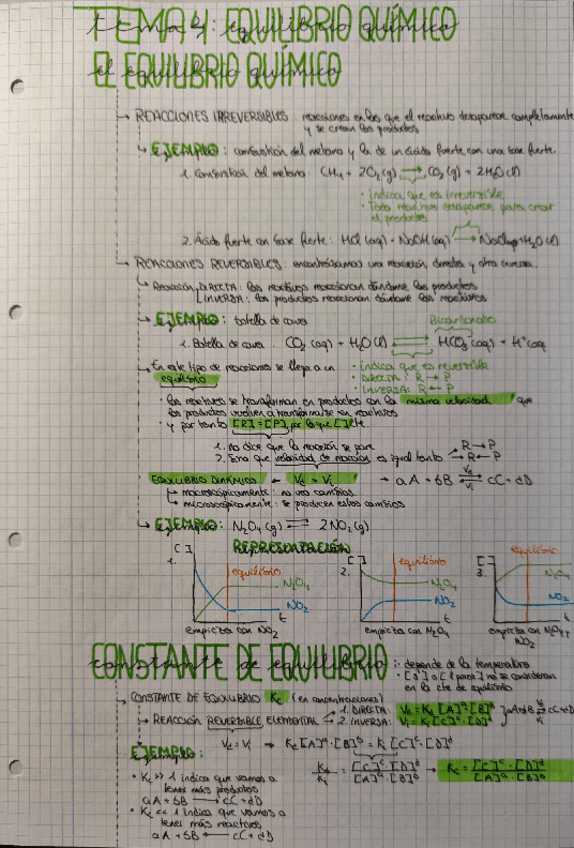 TEMA 4: EQUILIBRIO QUÍMICO
EL EQUILIBRIO QUÍMICO
→ REACCIONES IRREVERSIBLES: reacciones en las que el reactivo desaparece completamente
y se crean los productos
→ EJEMPLO: combustión del metano y la de un ácido fuerte con una base fuerte.
1. Combustión del metano: CH4 + 2O2(g) → CO2(g) + 2H2O(l)
· indica que es irreversible
· Todo reactivo desaparece para crear
el producto
2. Ácido fuerte con base fuerte: HCl(aq) + NaOH(aq) → NaCl(aq) + H2O(l)
→ REACCIONES REVERSIBLES: encontrásamos una reacción directa y otra inversa.
→ Reacción DIRECTA: los reactivos reaccionan dándome los productos
INVERSA: los productos reaccionan dándome los reactivos
→ EJEMPLO: botella de cava
Bicarbonato
1. Botella de cava: CO2(aq) + H2O(l) ⇄ HCO3⁻(aq) + H⁺(aq)
→ En este tipo de reacciones se llega a un
equilibrio
· indica que es reversible
· DIRECTA: R → P
· INVERSA: R ← P
· los reactivos se transforman en productos con la misma velocidad que
los productos vuelven a transformarse en reactivos
· y por tanto [R] = [P] por lo que [] cte.
1. No dice que la reacción se pare
2. Sino que velocidad de reacción es igual tanto R → P
R ← P
EQUILIBRIO DINÁMICO → Vd = Vi → aA + bB ⇄ cC + dD
Vd
Vi
→ macroscópicamente: no veo cambios
→ microscópicamente: se producen estos cambios
→ EJEMPLO: N2O4(g) ⇄ 2NO2(g)
REPRESENTACIÓN
1. [] equilibrio N2O4 NO2 t
2. [] equilibrio N2O4 NO2 t
3. [] equilibrio N2O4 NO2 t
empieza con NO2
empieza con N2O4
empieza con N2O4 y
NO2
CONSTANTE DE EQUILIBRIO
· depende de la temperatura
no se consideran
en la cte de equilibrio
→ CONSTANTE DE EQUILIBRIO Kc (en concentraciones)
→ REACCIÓN REVERSIBLE ELEMENTAL
1. DIRECTA: Vd = Kd [A]ᵃ [B]ᵇ
2. INVERSA: Vi = Ki [C]ᶜ · [D]ᵈ
aA + bB ⇄ cC + dD
Vd = Vi → Kd [A]ᵃ · [B]ᵇ = Ki [C]ᶜ · [D]ᵈ
EJEMPLO:
Kd/Ki = [C]ᶜ · [D]ᵈ / [A]ᵃ · [B]ᵇ → Kc = [C]ᶜ · [D]ᵈ / [A]ᵃ · [B]ᵇ
· Kc >> 1 indica que vamos a
tener más productos
aA + bB → cC + dD
· Kc << 1 indica que vamos a
tener más reactivos
aA + bB ← cC + dD